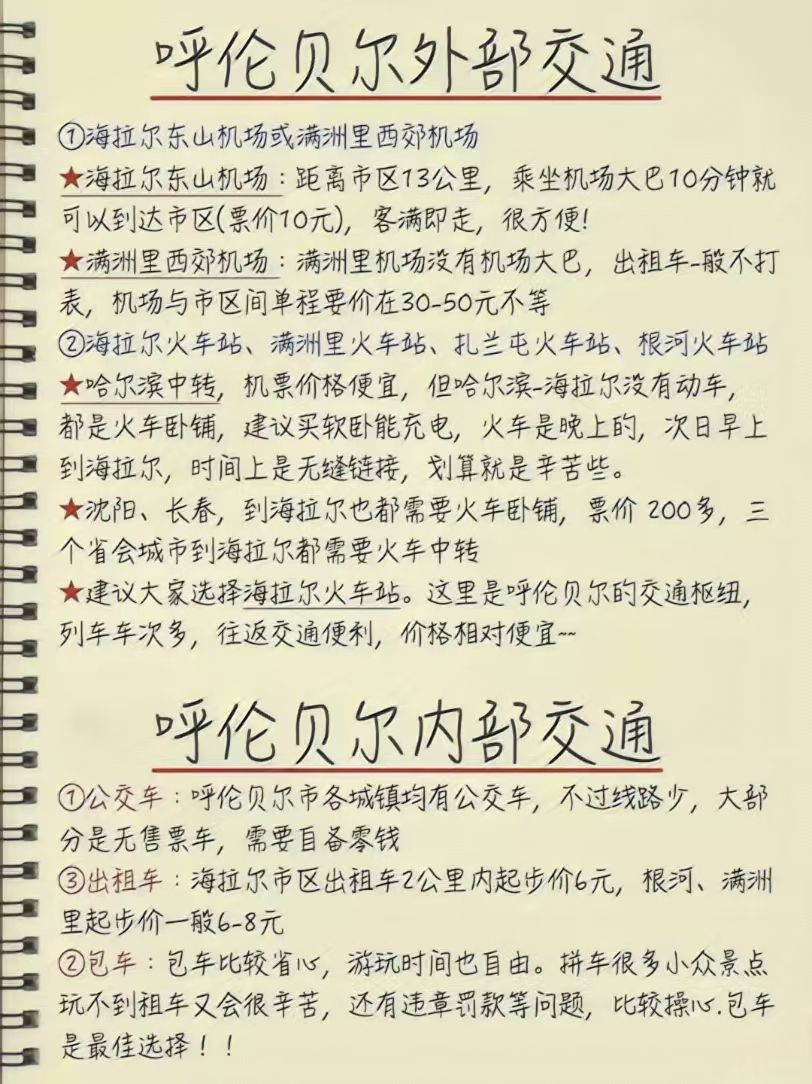 呼伦贝尔外部交通
①海拉尔东山机场或满洲里西郊机场
★海拉尔东山机场：距离市区13公里，乘坐机场大巴10分钟就
可以到达市区(票价10元)，客满即走，很方便!
★满洲里西郊机场：满洲里机场没有机场大巴，出租车-般不打
表，机场与市区间单程要价在30-50元不等
②海拉尔火车站、满洲里火车站、扎兰屯火车站、根河火车站
★哈尔滨中转，机票价格便宜，但哈尔滨-海拉尔没有动车，
都是火车卧铺，建议买软卧能充电，火车是晚上的，次日早上
到海拉尔，时间上是无缝链接，划算就是辛苦些。
★沈阳、长春，到海拉尔也都需要火车卧铺，票价 200多，三
个省会城市到海拉尔都需要火车中转
★建议大家选择海拉尔火车站。这里是呼伦贝尔的交通枢纽，
列车车次多，往返交通便利，价格相对便宜~~
呼伦贝尔内部交通
①公交车：呼伦贝尔市各城镇均有公交车，不过线路少，大部
分是无售票车，需要自备零钱
③出租车：海拉尔市区出租车2公里内起步价6元，根河、满洲
里起步价一般6-8元
②包车：包车比较省心，游玩时间也自由。拼车很多小众景点
玩不到租车又会很辛苦，还有违章罚款等问题，比较操心.包车
是最佳选择！！